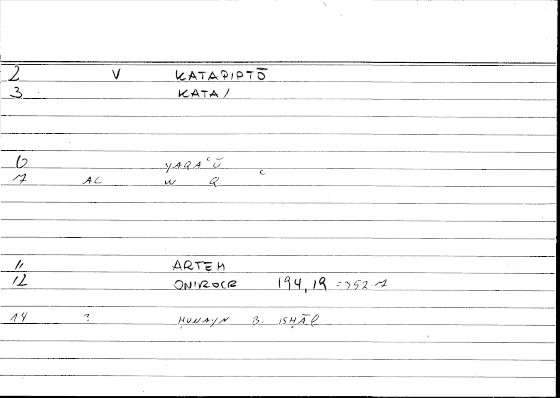 2 V KATAPIPTŌ
3 KATA/
6 YAQAʿŪ
7 AL W Q ʿ
11 ARTEM
12 ONIROCR 194,19 => 352 7
14 ? ḤUNAYN B. ISḤĀQ